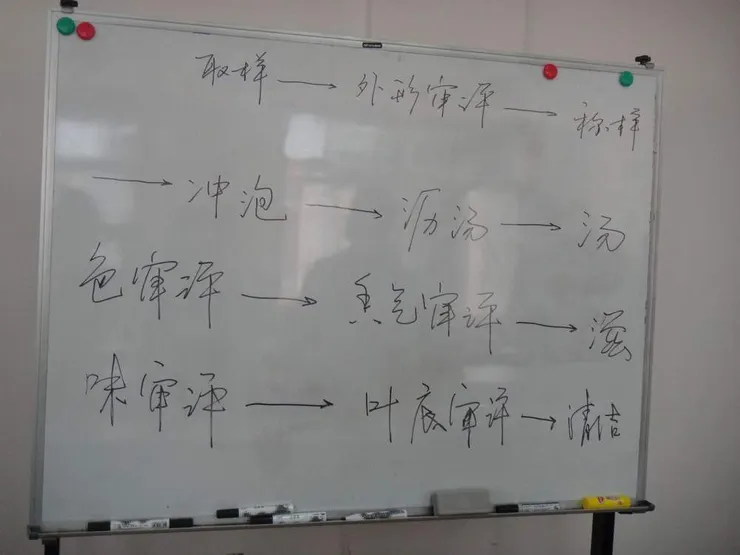 取样 → 外形审评 → 称样
→ 冲泡 → 沥汤 → 汤
色审评 → 香气审评 → 滋
味审评 → 叶底审评 → 清洁